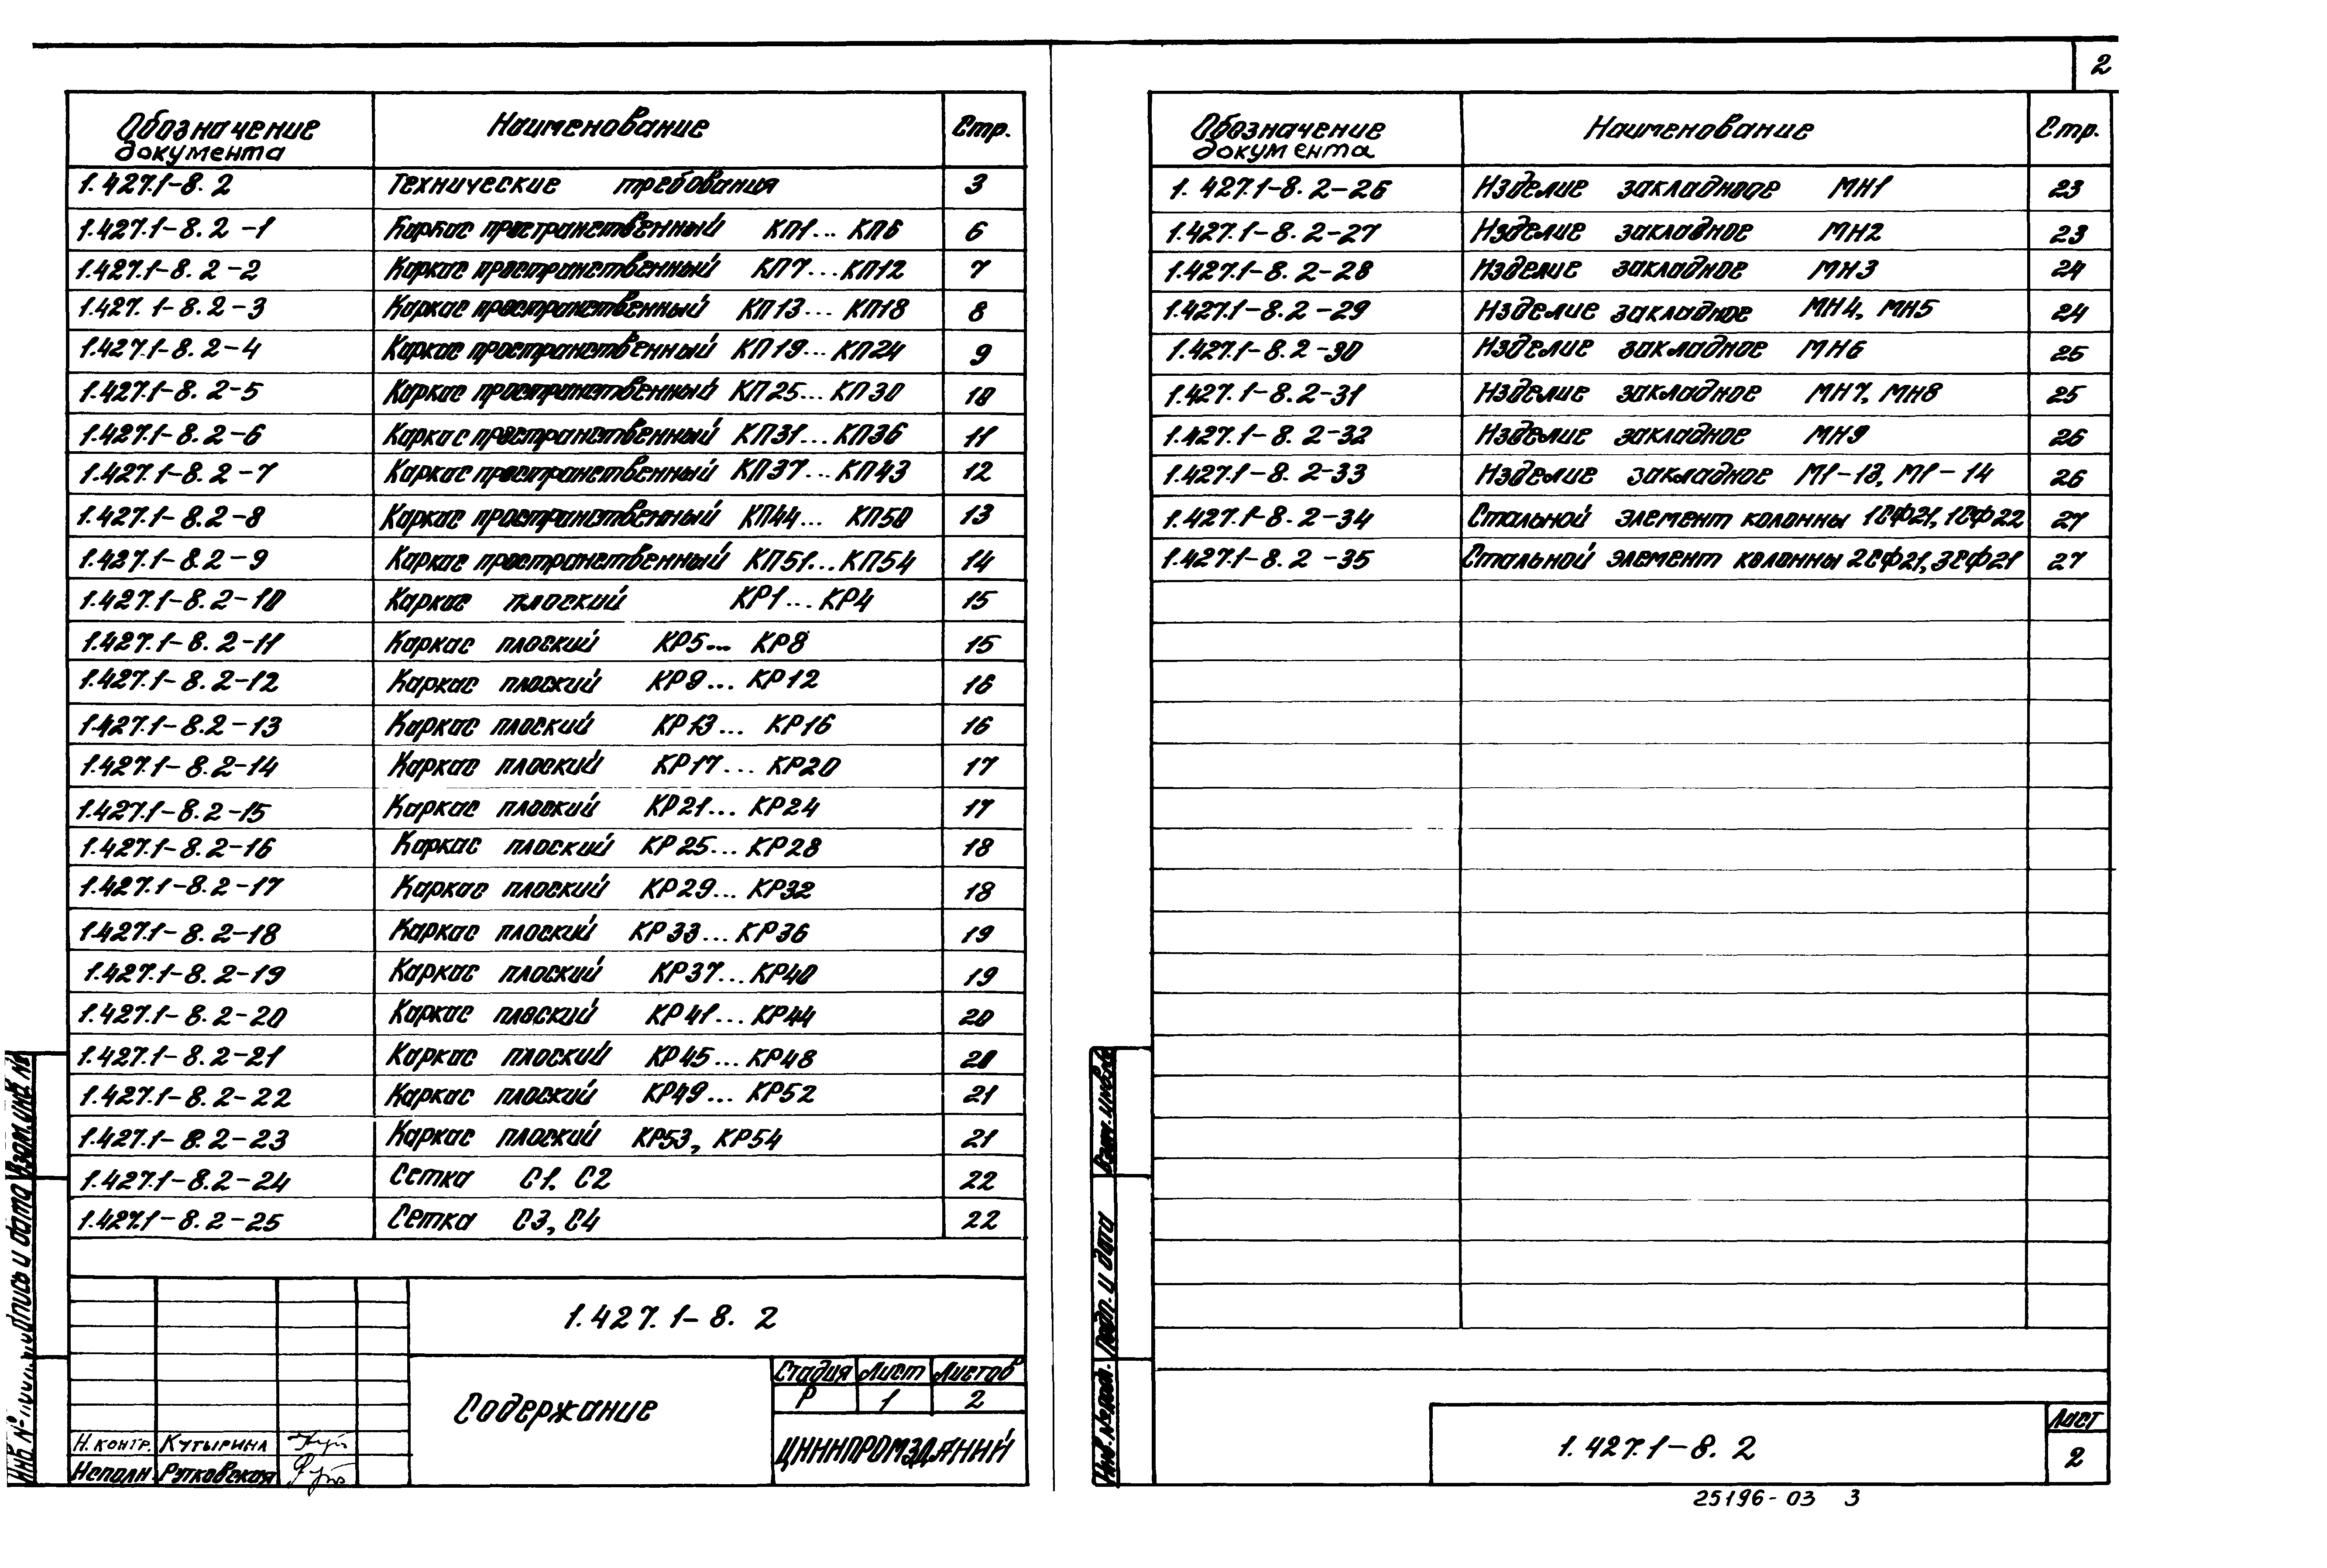 2
Обозначение документа Наименование Стр.
1.427.1-8.2 Технические требования 3
1.427.1-8.2-1 Каркас пространственный КП1... КП6 6
1.427.1-8.2-2 Каркас пространственный КП7...КП12 7
1.427.1-8.2-3 Каркас пространственный КП13... КП18 8
1.427.1-8.2-4 Каркас пространственный КП19...КП24 9
1.427.1-8.2-5 Каркас пространственный КП25...КП30 10
1.427.1-8.2-6 Каркас пространственный КП31...КП36 11
1.427.1-8.2-7 Каркас пространственный КП37...КП43 12
1.427.1-8.2-8 Каркас пространственный КП44... КП50 13
1.427.1-8.2-9 Каркас пространственный КП51...КП54 14
1.427.1-8.2-10 Каркас плоский КР1...КР4 15
1.427.1-8.2-11 Каркас плоский КР5... КР8 15
1.427.1-8.2-12 Каркас плоский КР9... КР12 16
1.427.1-8.2-13 Каркас плоский КР13... КР16 16
1.427.1-8.2-14 Каркас плоский КР17... КР20 17
1.427.1-8.2-15 Каркас плоский КР21... КР24 17
1.427.1-8.2-16 Каркас плоский КР25... КР28 18
1.427.1-8.2-17 Каркас плоский КР29... КР32 18
1.427.1-8.2-18 Каркас плоский КР33...КР36 19
1.427.1-8.2-19 Каркас плоский КР37...КР40 19
1.427.1-8.2-20 Каркас плоский КР41...КР44 20
1.427.1-8.2-21 Каркас плоский КР45...КР48 20
1.427.1-8.2-22 Каркас плоский КР49... КР52 21
1.427.1-8.2-23 Каркас плоский КР53, КР54 21
1.427.1-8.2-24 Сетка С1, С2 22
1.427.1-8.2-25 Сетка С3, С4 22
1.427.1-8.2
Содержание
Стадия Лист Листов
Р 1 2
ЦНИИПРОМЗДАНИЙ
Н.контр. Кутырина
Исполн. Рутковская
Взам.инв.№
Подпись и дата
Инв.№
Обозначение документа Наименование Стр.
1.427.1-8.2-26 Изделие закладное МН1 23
1.427.1-8.2-27 Изделие закладное МН2 23
1.427.1-8.2-28 Изделие закладное МН3 24
1.427.1-8.2-29 Изделие закладное МН4, МН5 24
1.427.1-8.2-30 Изделие закладное МН6 25
1.427.1-8.2-31 Изделие закладное МН7, МН8 25
1.427.1-8.2-32 Изделие закладное МН9 26
1.427.1-8.2-33 Изделие закладное М1-13, М1-14 26
1.427.1-8.2-34 Стальной элемент колонны 1СФ21, 1СФ22 27
1.427.1-8.2-35 Стальной элемент колонны 2СФ21, 3СФ21 27
Взам.инв.№
Подп. и дата
Инв.№подл.
1.427.1-8.2
Лист
2
25196-03 3